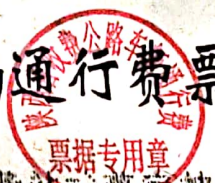 通行费票
陕西 收费公路车辆通行费
票据专用章